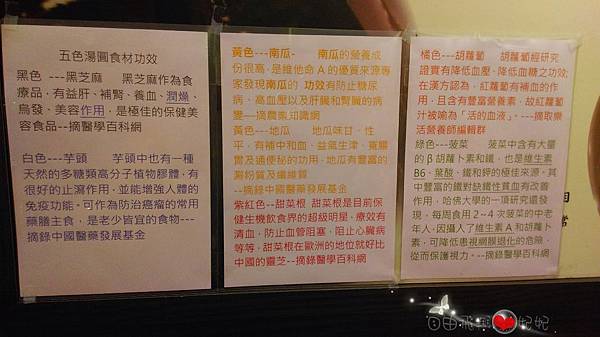 五色湯圓食材功效
黑色 ---黑芝麻 黑芝麻作為食
療品,有益肝、補腎、養血、潤燥、
烏發、美容作用,是極佳的保健美
容食品--摘醫學百科網
白色---芋頭 芋頭中也有一種
天然的多糖類高分子植物膠體,有
很好的止瀉作用,並能增強人體的
免疫功能。可作為防治癌瘤的常用
藥膳主食,是老少皆宜的食物---
摘錄中國醫藥發展基金
黃色---南瓜- 南瓜的營養成
份很高,是維他命A的優質來源專
家發現南瓜的 功效有防止糖尿
病、高血壓以及肝臟和腎臟的病
變—摘農業知識網
黃色---地瓜 地瓜味甘、性
平,有補中和血、益氣生津、寬腸
胃及通便秘的功用,地瓜有豐富的
澱粉質及纖維質
--摘錄中國醫藥發展基金
紫紅色--甜菜根 甜菜根是目前保
健生機飲食界的超級明星,療效有
清血,防止血管阻塞,阻止心臟病
等等,甜菜根在歐洲的地位就好比
中國的靈芝--摘錄醫學百科網
橘色---胡蘿蔔 胡蘿蔔經研究
證實有降低血壓、降低血糖之功效;
在漢方認為,紅蘿蔔有補血的作
用,且含有豐富營養素,故紅蘿蔔
汁被喻為「活的血液」。---摘取樂
活營養師編輯群
綠色---菠菜 菠菜中含有大量
的β胡蘿卜素和鐵,也是維生素
B6、葉酸、鐵和鉀的極佳來源。其
中豐富的鐵對缺鐵性貧血有改善
作用,哈佛大學的一項研究還發
現,每周食用2~4次菠菜的中老
年人,因攝入了維生素A和胡蘿卜
素,可降低患視網膜退化的危險,
從而保護視力。--摘錄醫學百科網
常
自由飛翔 妃妃